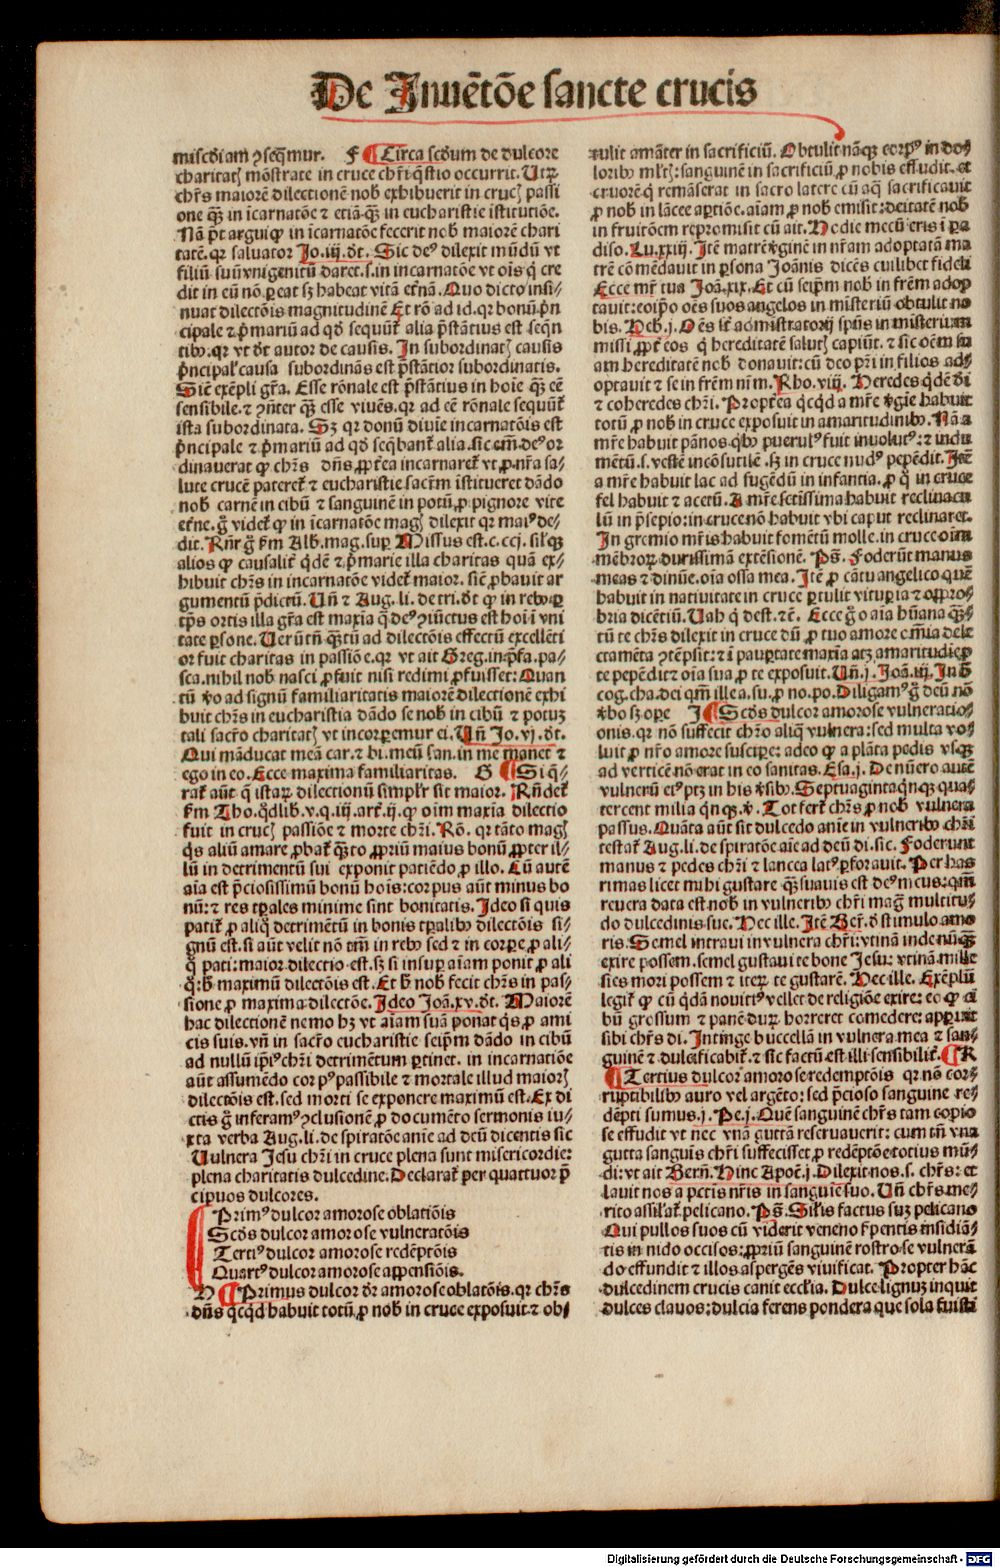 De Inuẽtõe sancte crucis
miscďiam ꝯseq̃mur. F ¶ Circa scďum de dulcore
charitatꝭ mõstrate in cruce chr̃i q̃stio occurrit. Utꝝ
chr̃s maiorẽ dilectionẽ nob exhibuerit in crucꝭ passi
one qꝫ̃ in ĩcarnatõe ⁊ etiã qꝫ̃ in eucharistie ĩstitutiõe.
Nã p̃t argui ꝙ in ĩcarnatõe fecerit nob maiorẽ chari
tatẽ. qꝛ saluator Jo. iij. ďt. Sic deꝰ dilexit mũdũ vt
filiũ suũ vnigenitũ daret. s. in incarnatõe vt oĩs q̇ cre
dit in eũ nõ ꝑeat sꝫ habeat vitã et̃nã. Quo dicto insi⸗
nuat dilectõis magnitudinẽ Et rõ ad id. qꝛ bonũ p̃n
cipale ⁊ p̃mariũ ad qď sequũt᷑ alia p̃stãtius est seq̃n
tibꝰ. qꝛ vt ďt autor de causis. In subordinatꝭ causis
p̃ncipal᷑ causa subordinãs est p̃stãtior subordinatis.
Sic̃ exẽpli gr̃a. Esse rõnale est p̃stãtius in hoĩe qꝫ̃ eẽ
sensibile. ⁊ ꝯñter qꝫ̃ esse viuẽs. qꝛ ad eẽ rõnale sequũt᷑
ista subordinata. Sꝫ qꝛ donũ diuĩe incarnatõis est
p̃ncipale ⁊ p̃mariũ ad qď seq̃bant᷑ alia. sic em̃. deꝰ or
dinauerat ꝙ chr̃s dñs ꝓpt̃ea incarnaret᷑ vt ꝓ nr̃a sa⸗
lute crucẽ pateret᷑ ⁊ eucharistie sacr̃m ĩstitueret dãdo
nob carnẽ in cibũ ⁊ sanguinẽ in potũ. ꝓ pignore vite
et̃ne. g̊ videt᷑ ꝙ in ĩcarnatõe magꝭ dilexit qꝛ maiꝰ de⸗
dit. Rñr g̊ ẜm Alb. mag. suꝑ Missus est. c. ccj. sil᷑qꝫ
alios ꝙ causalit᷑ q̇dẽ ⁊ p̃marie illa charitas quã ex⸗
hibuit chr̃s in incarnatõe videt᷑ maior. sic̃ ꝓbauit ar
gumentũ p̃dictũ. Uñ ⁊ Aug. li. de tri. ďt ꝙ in rebꝰ ꝑ
tp̃s ortis illa gr̃a est maxĩa q̃ deꝰ ꝯiũctus est hoĩ ĩ vni
tate ꝑsone. Uerũtñ qꝫ̃tũ ad dilectõis effectũ excellẽti
or fuit charitas in passiõe. qꝛ vt ait Greg. in p̃fa. pa⸗
sca. nihil nob nasci ꝓfuit nisi redimi ꝓfuisset: Quan
tũ ṽo ad signũ familiaritatis maiorẽ dilectionẽ exhi
buit chr̃s in eucharistia dãdo se nob in cibũ ⁊ potuꝫ
tali sacr̃o charitatꝭ vt incorꝑemur ei. Uñ Jo. vj. ďt.
Qui mãducat meã car. ⁊ bi. meũ san. in me manet ⁊
ego in eo. Ecce maxima familiaritas. G ¶ Si q̃⸗
rat᷑ aũt q̃ istaꝝ dilectionũ simpl᷑r sit maior. Rñdet᷑
ẜm Tho. q̊dlib. v. q. iij. art᷑. ij. ꝙ oĩm maxĩa dilectio
fuit in crucꝭ passiõe ⁊ morte chr̃i. Rõ. qꝛ tãto magꝭ
q̇s aliũ amare ꝓbat᷑ qꝫ̃to ꝓpriũ maius bonũ ꝓpter il⸗
lũ in detrimentũ sui exponit patiẽdo ꝓ illo. Cũ autẽ
aĩa est p̃ciosissimũ bonũ hoĩs: corpus aũt minus bo
nũ: ⁊ res tꝑales minime sint bonitatis. Ideo si quis
patit᷑ ꝓ aliq̊ detrimẽtũ in bonis tꝑalibꝰ dilectõis si⸗
gnũ est. si aũt velit nõ tm̃ in rebꝰ sed ⁊ in corꝑe. ꝓ ali⸗
q̊ pati: maior dilectio est. sꝫ si insuꝑ aĩam ponit ꝓ ali
q̊: h̃ maximũ dilectõis est. Et h̃ nob fecit chr̃s in pas⸗
sione ꝓ maxima dilectõe. Ideo Joã. xv. ďt. Maiorẽ
hac dilectionẽ nemo hꝫ vt aĩam suã ponat q̇s ꝓ ami
cis suis. vñ in sacr̃o eucharistie seip̃m dãdo in cibũ
ad nullũ ip̃iꝰ chr̃i detrimentum ꝑtinet. in incarnatiõe
aũt assumẽdo corpꝰ passibile ⁊ mortale illud maiorꝭ
dilectõis est. sed morti se exponere maximũ est. Ex di
ctis g̊ inferamꝰ ꝯclusionẽ ꝓ documẽto sermonis iu⸗
xta verba Aug. li. de spiratõe anĩe ad deũ dicentis sic
Uulnera Jesu chr̃i in cruce plena sunt misericordie:
plena charitatis dulcedine. Declarat᷑ per quattuor p̃
cipuos dulcores.
Primꝰ dulcor amorose oblatiõis
Scďs dulcor amorose vulneratõis
Tertiꝰ dulcor amorose redẽptõis
Quartꝰ dulcor amorose appensiõis.
H ¶ Primus dulcor ďr amorose oblatõis. qꝛ chr̃s
dñs q̇cq̇d habuit totũ ꝓ nob in cruce exposuit. ⁊ ob⸗
tulit amãter in sacrificiũ. Obtulit nãqꝫ corpꝰ in do⸗
loribꝰ mĩtꝭ: sanguinẽ in sacrificiũ ꝓ nobis effudit. et
cruorẽ q̇ remãserat in sacro latere cũ aq̃ sacrificauit
ꝓ nob in lãcee aꝑtiõe. aĩam ꝓ nob emisit: deitatẽ nob
in fruitõem repromisit cũ ait. Hodie mecũ eris ĩ ꝑa
diso. Lu. xxiij. Itẽ matrẽ ꝟginẽ in nr̃am adoptatã ma
trẽ cõmẽdauit in ꝑsona Joãnis dicẽs cuilibet fideli
Ecce mr̃ tua Joã. xix. Et cũ seip̃m nob in fr̃em adop
tauit: eoip̃o oẽs suos angelos in mĩsteriũ obtulit no
bis. Heb. j. Oẽs st̃ admĩstratorij sp̃us in misterium
missi ꝓpt᷑ eos q̇ hereditatẽ salutꝭ capiũt. ⁊ sic oẽm su
am hereditatẽ nob donauit: cũ deo pr̃i in filios ad⸗
optauit ⁊ se in fr̃em nĩm. Rho. viij. Heredes q̇dẽ dĩ
⁊ coheredes chr̃i. Propt̃ea q̇cq̇d a mr̃e ꝟgĩe habuit
totũ ꝓ nob in cruce exposuit in amaritudinibꝰ. Nã a
mr̃e habuit pãnos. q̇bꝰ puerulꝰ fuit inuolutꝰ: ⁊ indu
mẽtũ. s. vestẽ incõsutilẽ. sꝫ in cruce nudꝰ pepẽdit. Itẽ
a mr̃e habuit lac ad fugẽdũ in infantia. ꝓ q̊ in cruce
fel habuit ⁊ acetũ. A mr̃e sctĩssima habuit reclinacu
lũ in p̃sepio: in cruce nõ habuit vbi caput reclinaret.
In gremio mr̃is habuit fomẽtũ molle. in cruce oĩm
mẽbroꝝ durissimã extẽsionẽ. Ps̃. Foderũt manus
meas ⁊ dinũe. oĩa ossa mea. Itẽ ꝓ cãtu angelico quẽ
habuit in natiuitate in cruce ꝑtulit vituꝑia ⁊ oppro⸗
bria dicẽtiũ. Uah q̇ dest. ⁊c̃. Ecce g̊ o aĩa hũana qꝫ̃⸗
tũ te chr̃s dilexit in cruce dũ ꝓ tuo amore oĩa dele
ctamẽta ꝯtẽpsit: ⁊ ĩ pauꝑtate maxĩa atqꝫ amaritudie ꝓ
te pepẽdit ⁊ oĩa sua ꝓ te exposuit. Uñ. j. Joã. iij. In h̃
cog. cha. dei qm̃ ille a. su. ꝓ no. po. Diligamꝰ g̊ deũ nõ
ꝟbo sꝫ oꝑe I ¶ Scďs dulcor amorose vulneratio⸗
onis. qꝛ nõ suffecit chr̃o aliq̃ vulnera: sed multa vo⸗
luit ꝓ nr̃o amore susciꝑe: adeo ꝙ a plãta pedis vsqꝫ
ad verticẽ nõ erat in eo sanitas. Esa. j. De nũero autẽ
vulnerũ eiꝰ ptꝫ in his ꝟsibꝰ. Septuagintaq̇nqꝫ qua⸗
tercent milia q̇nqꝫ. ꝟ. Tot fert᷑ chr̃s ꝓ nob vulnera
passus. Quãta aũt sit dulcedo anĩe in vulneribꝰ chr̃i
testat᷑ Aug. li. de spiratõe aĩe ad deũ di. sic. Foderunt
manus ⁊ pedes chr̃i ⁊ lancea latꝰ ꝑforauit. Per has
rimas licet mihi gustare qꝫ̃ suauis est deꝰ meus: qm̃
reuera data est nob in vulneribꝰ chr̃i magᷓ multitu⸗
do dulcedinis sue. Hec ille. Itẽ Ber̃. ď stimulo amo
ris. Semel intraui in vulnera chr̃i: vtinã inde nũqꝫ̃
exire possem. semel gustaui te bone Jesu: vtinã mille
sies mori possem ⁊ iteꝝ te gustarẽ. Hec ille. Exẽplũ
legit᷑ ꝙ cũ q̇dã nouitiꝰ vellet de religiõe exire: eo ꝙ ci
bũ grossum ⁊ panẽ duꝝ horreret comedere: apparuit
sibi chr̃s di. Intinge buccellã in vulnera mea ⁊ san⸗
guinẽ ⁊ dulcificabit᷑. ⁊ sic factũ est illi sensibilit᷑. ¶ K
¶ Tertius dulcor amorose redemptõis qꝛ nõ cor⸗
ruptibilibꝰ auro vel argẽto: sed p̃cioso sanguine re⸗
dẽpti sumus. j. Pe. j. Quẽ sanguinẽ chr̃s tam copio
se effudit vt nec vnã guttã reseruauerit: cum tñ vna
gutta sanguis chr̃i suffecisset ꝓ redẽptõe totius mũ⸗
di: vt ait Berñ. Hinc Apoc̃. j. Dilexit nos. s. chr̃s: et
lauit nos a pctĩs nr̃is in sanguĩe suo. Uñ chr̃s me⸗
rito assilat᷑ pelicano. Ps̃. Sil᷑is factus suꝫ pelicano
Qui pullos suos cũ viderit veneno ẜpentis insidiã⸗
tis in nido occisos: ꝓpriũ sanguinẽ rostro se vulnerã
do effundit ⁊ illos aspergẽs viuificat. Propter hãc
dulcedinem crucis canit eccĩia. Dulce lignuꝫ inquit
dulces clauos: dulcia ferens pondera que sola fuisti
Digitalisierung gefördert durch die Deutsche Forschungsgemeinschaft - DFG